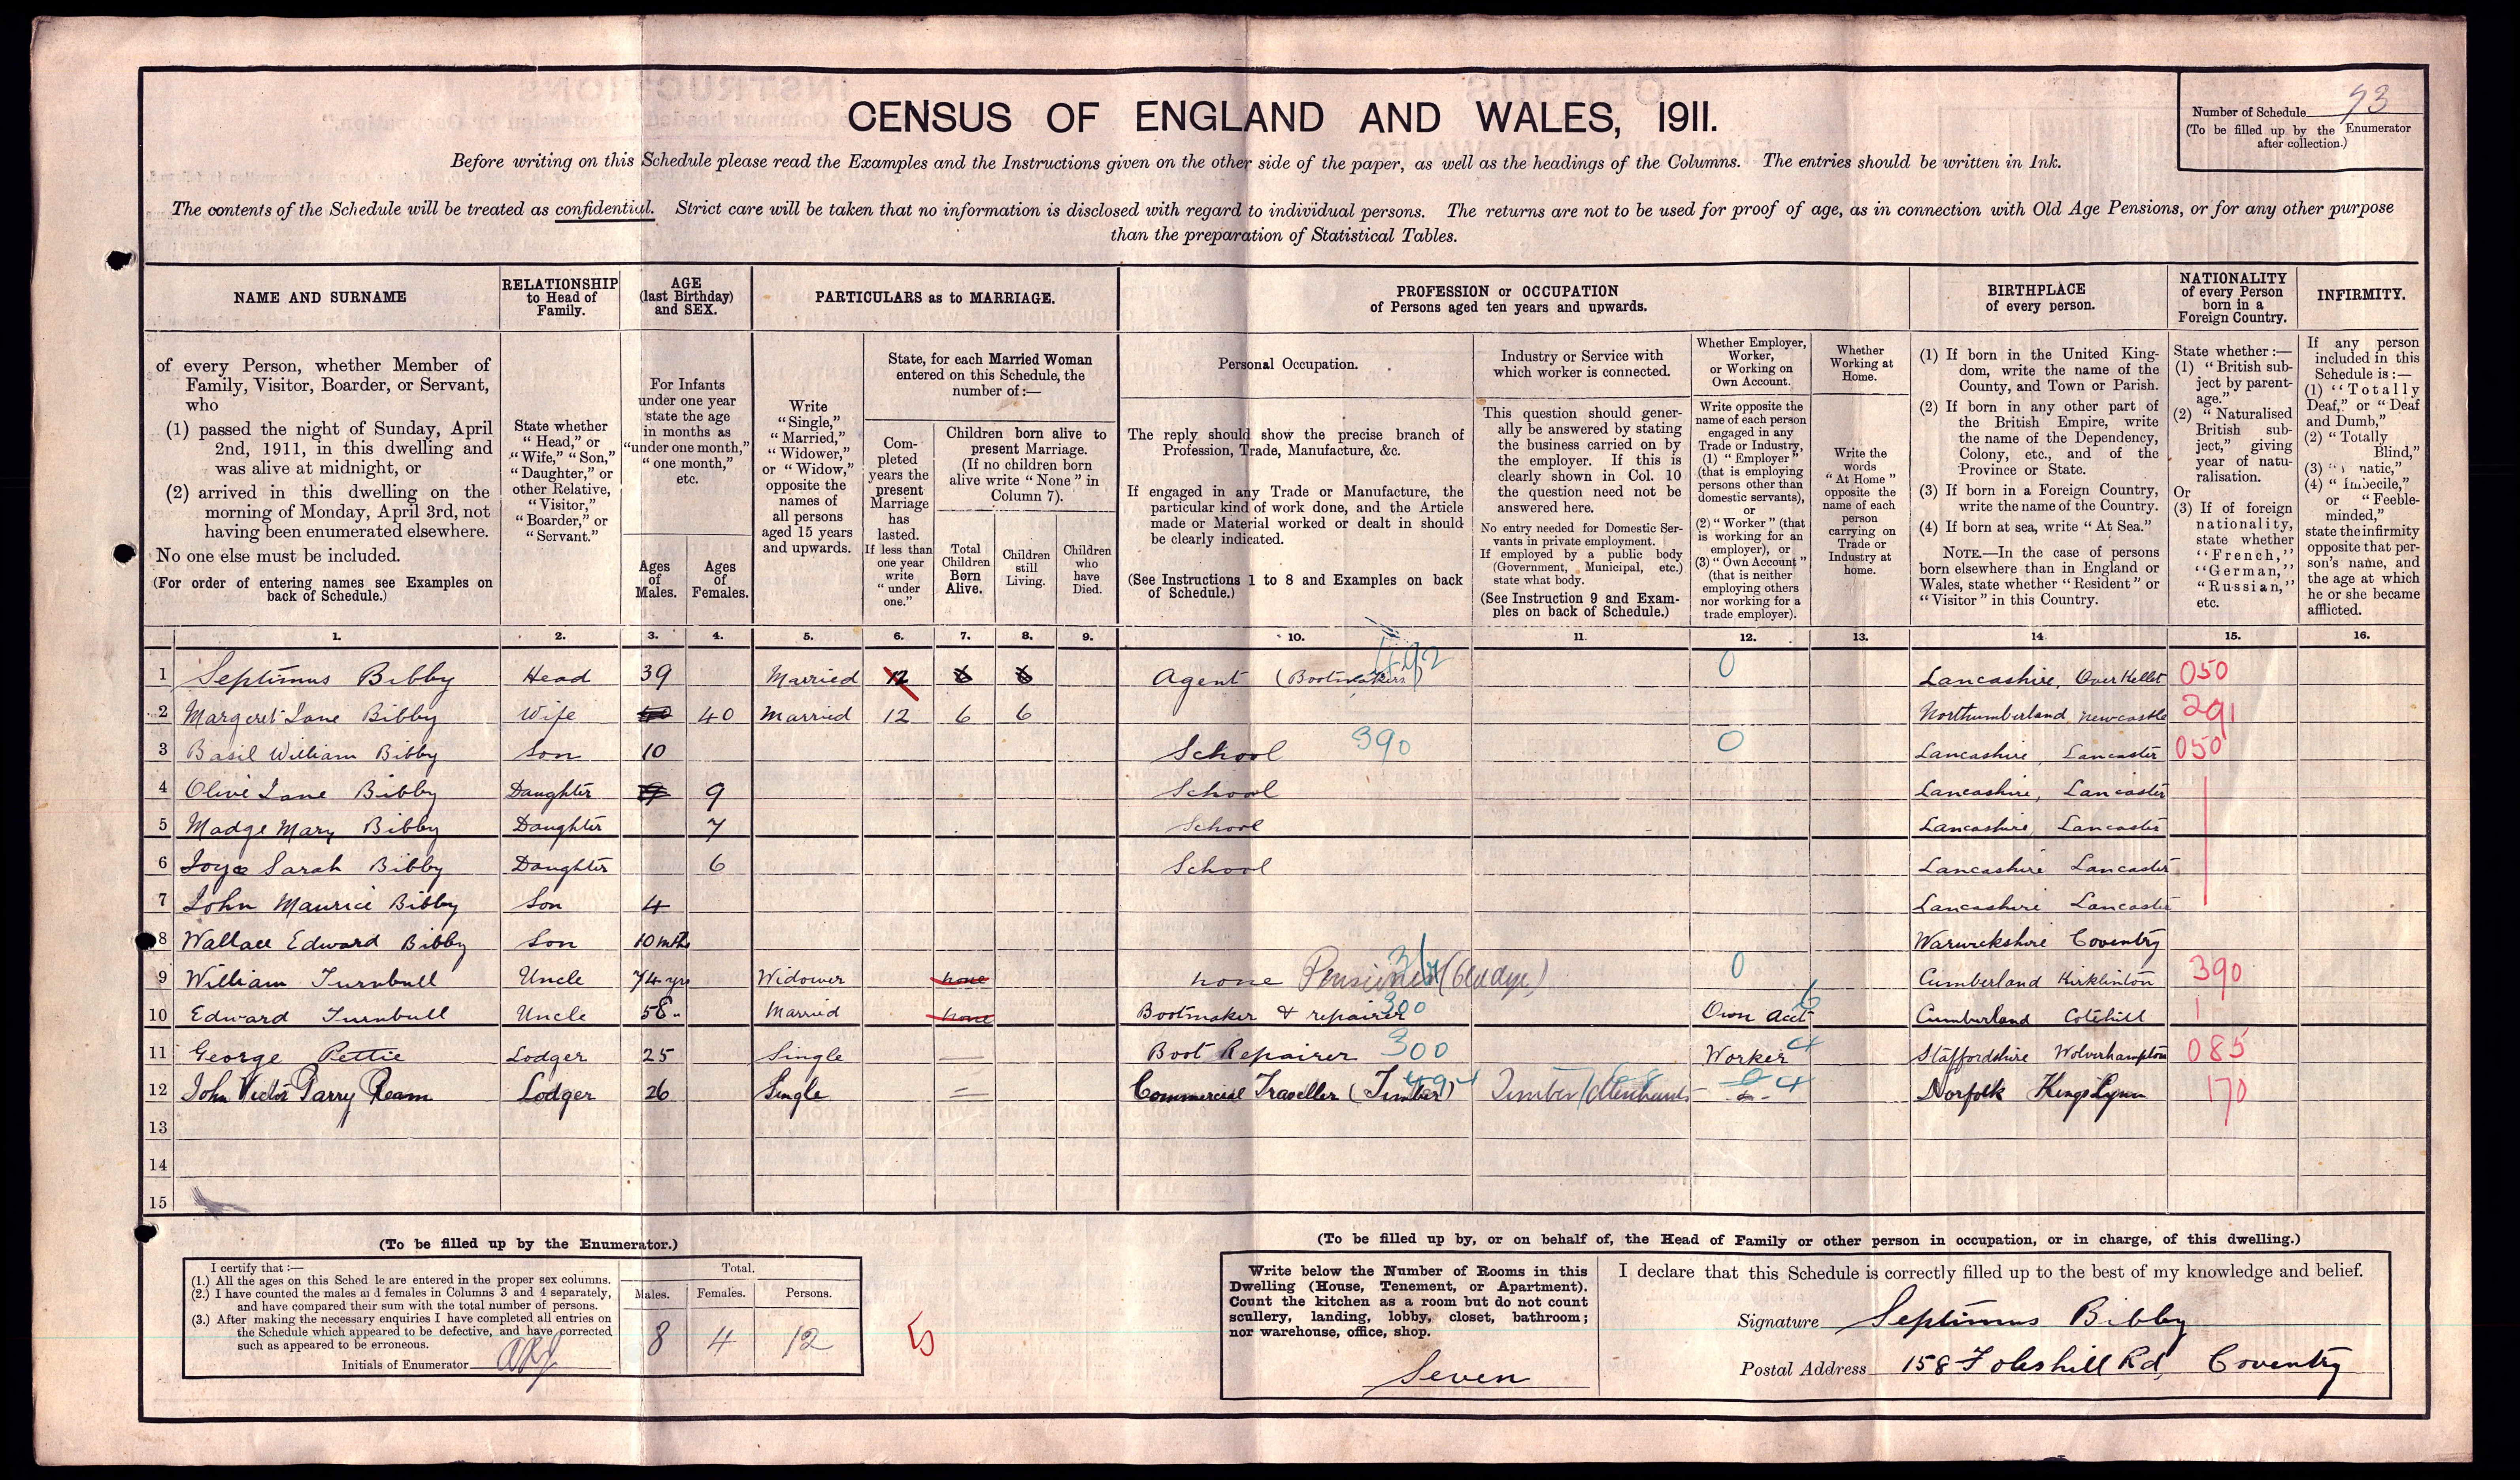 CENSUS OF ENGLAND AND WALES, 1911.
Number of Schedule 93
(To be filled up by the Enumerator
after collection.)
Before writing on this Schedule please read the Examples and the Instructions given on the other side of the paper, as well as the headings of the Columns. The entries should be written in Ink.
The contents of the Schedule will be treated as confidential. Strict care will be taken that no information is disclosed with regard to individual persons. The returns are not to be used for proof of age, as in connection with Old Age Pensions, or for any other purpose
than the preparation of Statistical Tables.
NAME AND SURNAME
of every Person, whether Member of
Family, Visitor, Boarder, or Servant,
who
(1) passed the night of Sunday, April
2nd, 1911, in this dwelling and
was alive at midnight, or
(2) arrived in this dwelling on the
morning of Monday, April 3rd, not
having been enumerated elsewhere.
No one else must be included.
(For order of entering names see Examples on
back of Schedule.)
RELATIONSHIP
to Head of
Family.
State whether
"Head," or
"Wife," "Son,"
"Daughter," or
other Relative,
"Visitor,"
"Boarder," or
"Servant."
AGE
(last Birthday)
and SEX.
For Infants
under one year
state the age
in months as
"under one month,"
"one month,"
etc.
Ages
of
Males.
Ages
of
Females.
PARTICULARS as to MARRIAGE.
Write
"Single,"
"Married,"
"Widower,"
or "Widow,"
opposite the
names of
all persons
aged 15 years
and upwards.
State, for each Married Woman
entered on this Schedule, the
number of:—
Com-
pleted
years the
present
Marriage
has
lasted.
If less than
one year
write
"under
one."
Children born alive to
present Marriage.
(If no children born
alive write "None" in
Column 7).
Total
Children
Born
Alive.
Children
still
Living.
Children
who
have
Died.
PROFESSION or OCCUPATION
of Persons aged ten years and upwards.
Personal Occupation.
The reply should show the precise branch of
Profession, Trade, Manufacture, &c.
If engaged in any Trade or Manufacture, the
particular kind of work done, and the Article
made or Material worked or dealt in should
be clearly indicated.
(See Instructions 1 to 8 and Examples on back
of Schedule.)
Industry or Service with
which worker is connected.
This question should gener-
ally be answered by stating
the business carried on by
the employer. If this is
clearly shown in Col. 10
the question need not be
answered here.
No entry needed for Domestic Ser-
vants in private employment.
If employed by a public body
(Government, Municipal, etc.)
state what body.
(See Instruction 9 and Exam-
ples on back of Schedule.)
Whether Employer,
Worker,
or Working on
Own Account.
Write opposite the
name of each person
engaged in any
Trade or Industry,
(1) "Employer"
(that is employing
persons other than
domestic servants),
or
(2) "Worker" (that
is working for an
employer), or
(3) "Own Account"
(that is neither
employing others
nor working for a
trade employer).
Whether
Working at
Home.
Write the
words
"At Home"
opposite the
name of each
person
carrying on
Trade or
Industry at
home.
BIRTHPLACE
of every person.
(1) If born in the United King-
dom, write the name of the
County, and Town or Parish.
(2) If born in any other part of
the British Empire, write
the name of the Dependency,
Colony, etc., and of the
Province or State.
(3) If born in a Foreign Country,
write the name of the Country.
(4) If born at sea, write "At Sea."
NOTE.—In the case of persons
born elsewhere than in England or
Wales, state whether "Resident" or
"Visitor" in this Country.
NATIONALITY
of every Person
born in a
Foreign Country.
State whether:—
(1) "British sub-
ject by parent-
age."
(2) "Naturalised
British sub-
ject," giving
year of natu-
ralisation.
Or
(3) If of foreign
nationality,
state whether
"French,"
"German,"
"Russian,"
etc.
INFIRMITY.
If any person
included in this
Schedule is:—
(1) "Totally
Deaf," or "Deaf
and Dumb,"
(2) "Totally
Blind,"
(3) natic,"
(4) "Imbecile,"
or "Feeble-
minded,"
state the infirmity
opposite that per-
son's name, and
the age at which
he or she became
afflicted.
1. 2. 3. 4. 5. 6. 7. 8. 9. 10. 11. 12. 13. 14. 15. 16.
1 Septimus Bibby Head 39 Married 12 6 6 Agent (Bootmakers) 492 0 Lancashire, Over Kellet 050
2 Margeret Jane Bibby Wife 40 40 Married 12 6 6 Northumberland Newcastle 291
3 Basil William Bibby Son 10 School 390 0 Lancashire, Lancaster 050
4 Olive Jane Bibby Daughter 9 9 School Lancashire, Lancaster
5 Madge Mary Bibby Daughter 7 School Lancashire, Lancaster
6 Joyce Sarah Bibby Daughter 6 School Lancashire Lancaster
7 John Maurice Bibby Son 4 Lancashire Lancaster
8 Wallace Edward Bibby Son 10 mths Warwickshire Coventry
9 William Turnbull Uncle 74 yrs Widower none none Pensioner 0 Cumberland Kirklinton 390
10 Edward Turnbull Uncle 58 Married none Bootmaker & repairer 300 Own Acct 6 Cumberland Cotehill
11 George Pettie Lodger 25 Single — Boot Repairer 300 Worker 4 Staffordshire Wolverhampton 085
12 John Victor Parry Ream Lodger 26 Single = Commercial Traveller (Timber) Timber Merchants 4 Norfolk Kings Lynn 170
13
14
15
(To be filled up by the Enumerator.)
I certify that:—
(1.) All the ages on this Sched le are entered in the proper sex columns.
(2.) I have counted the males a d females in Columns 3 and 4 separately,
and have compared their sum with the total number of persons.
(3.) After making the necessary enquiries I have completed all entries on
the Schedule which appeared to be defective, and have corrected
such as appeared to be erroneous.
Initials of Enumerator
Total.
Males. Females. Persons.
8 4 12
5
(To be filled up by, or on behalf of, the Head of Family or other person in occupation, or in charge, of this dwelling.)
Write below the Number of Rooms in this
Dwelling (House, Tenement, or Apartment).
Count the kitchen as a room but do not count
scullery, landing, lobby, closet, bathroom;
nor warehouse, office, shop.
Seven
I declare that this Schedule is correctly filled up to the best of my knowledge and belief.
Signature Septimus Bibby
Postal Address 158 Foleshill Rd, Coventry